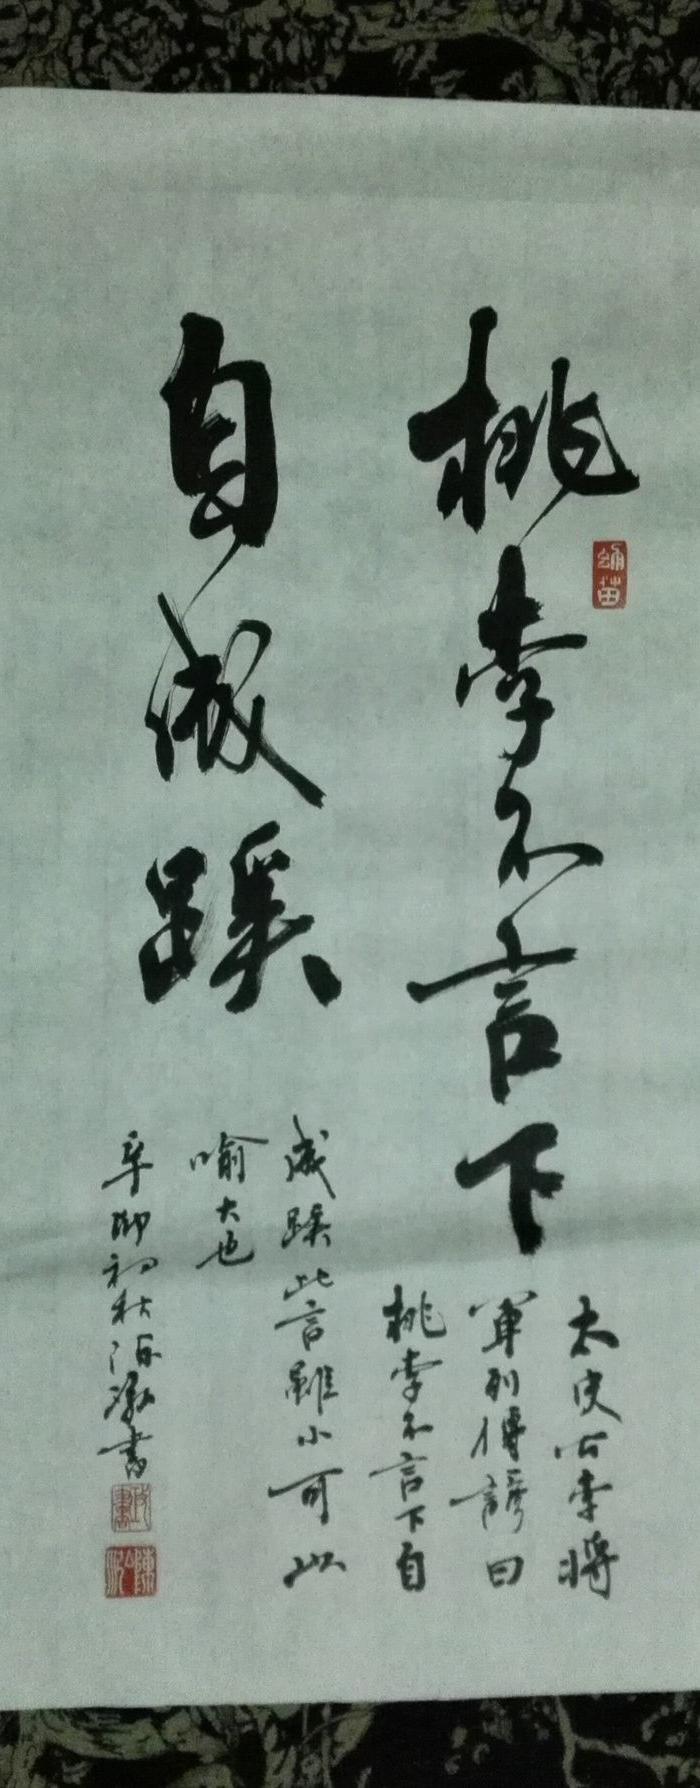 桃李不言下
自成蹊
太史公李將
軍列傳諺曰
桃李不言下自
成蹊此言雖小可以
喻大也
辛卯初秋陳泓書